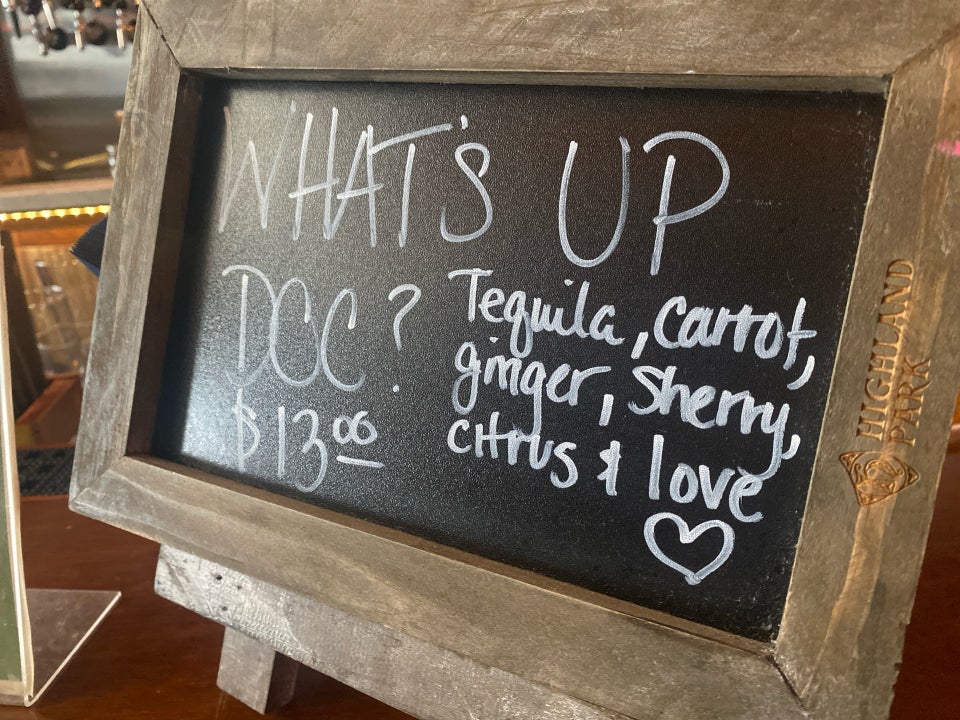 WHAT'S UP
DOC?
$13.00
Tequila, carrot,
ginger, sherry,
citrus & love
HIGHLAND
PARK